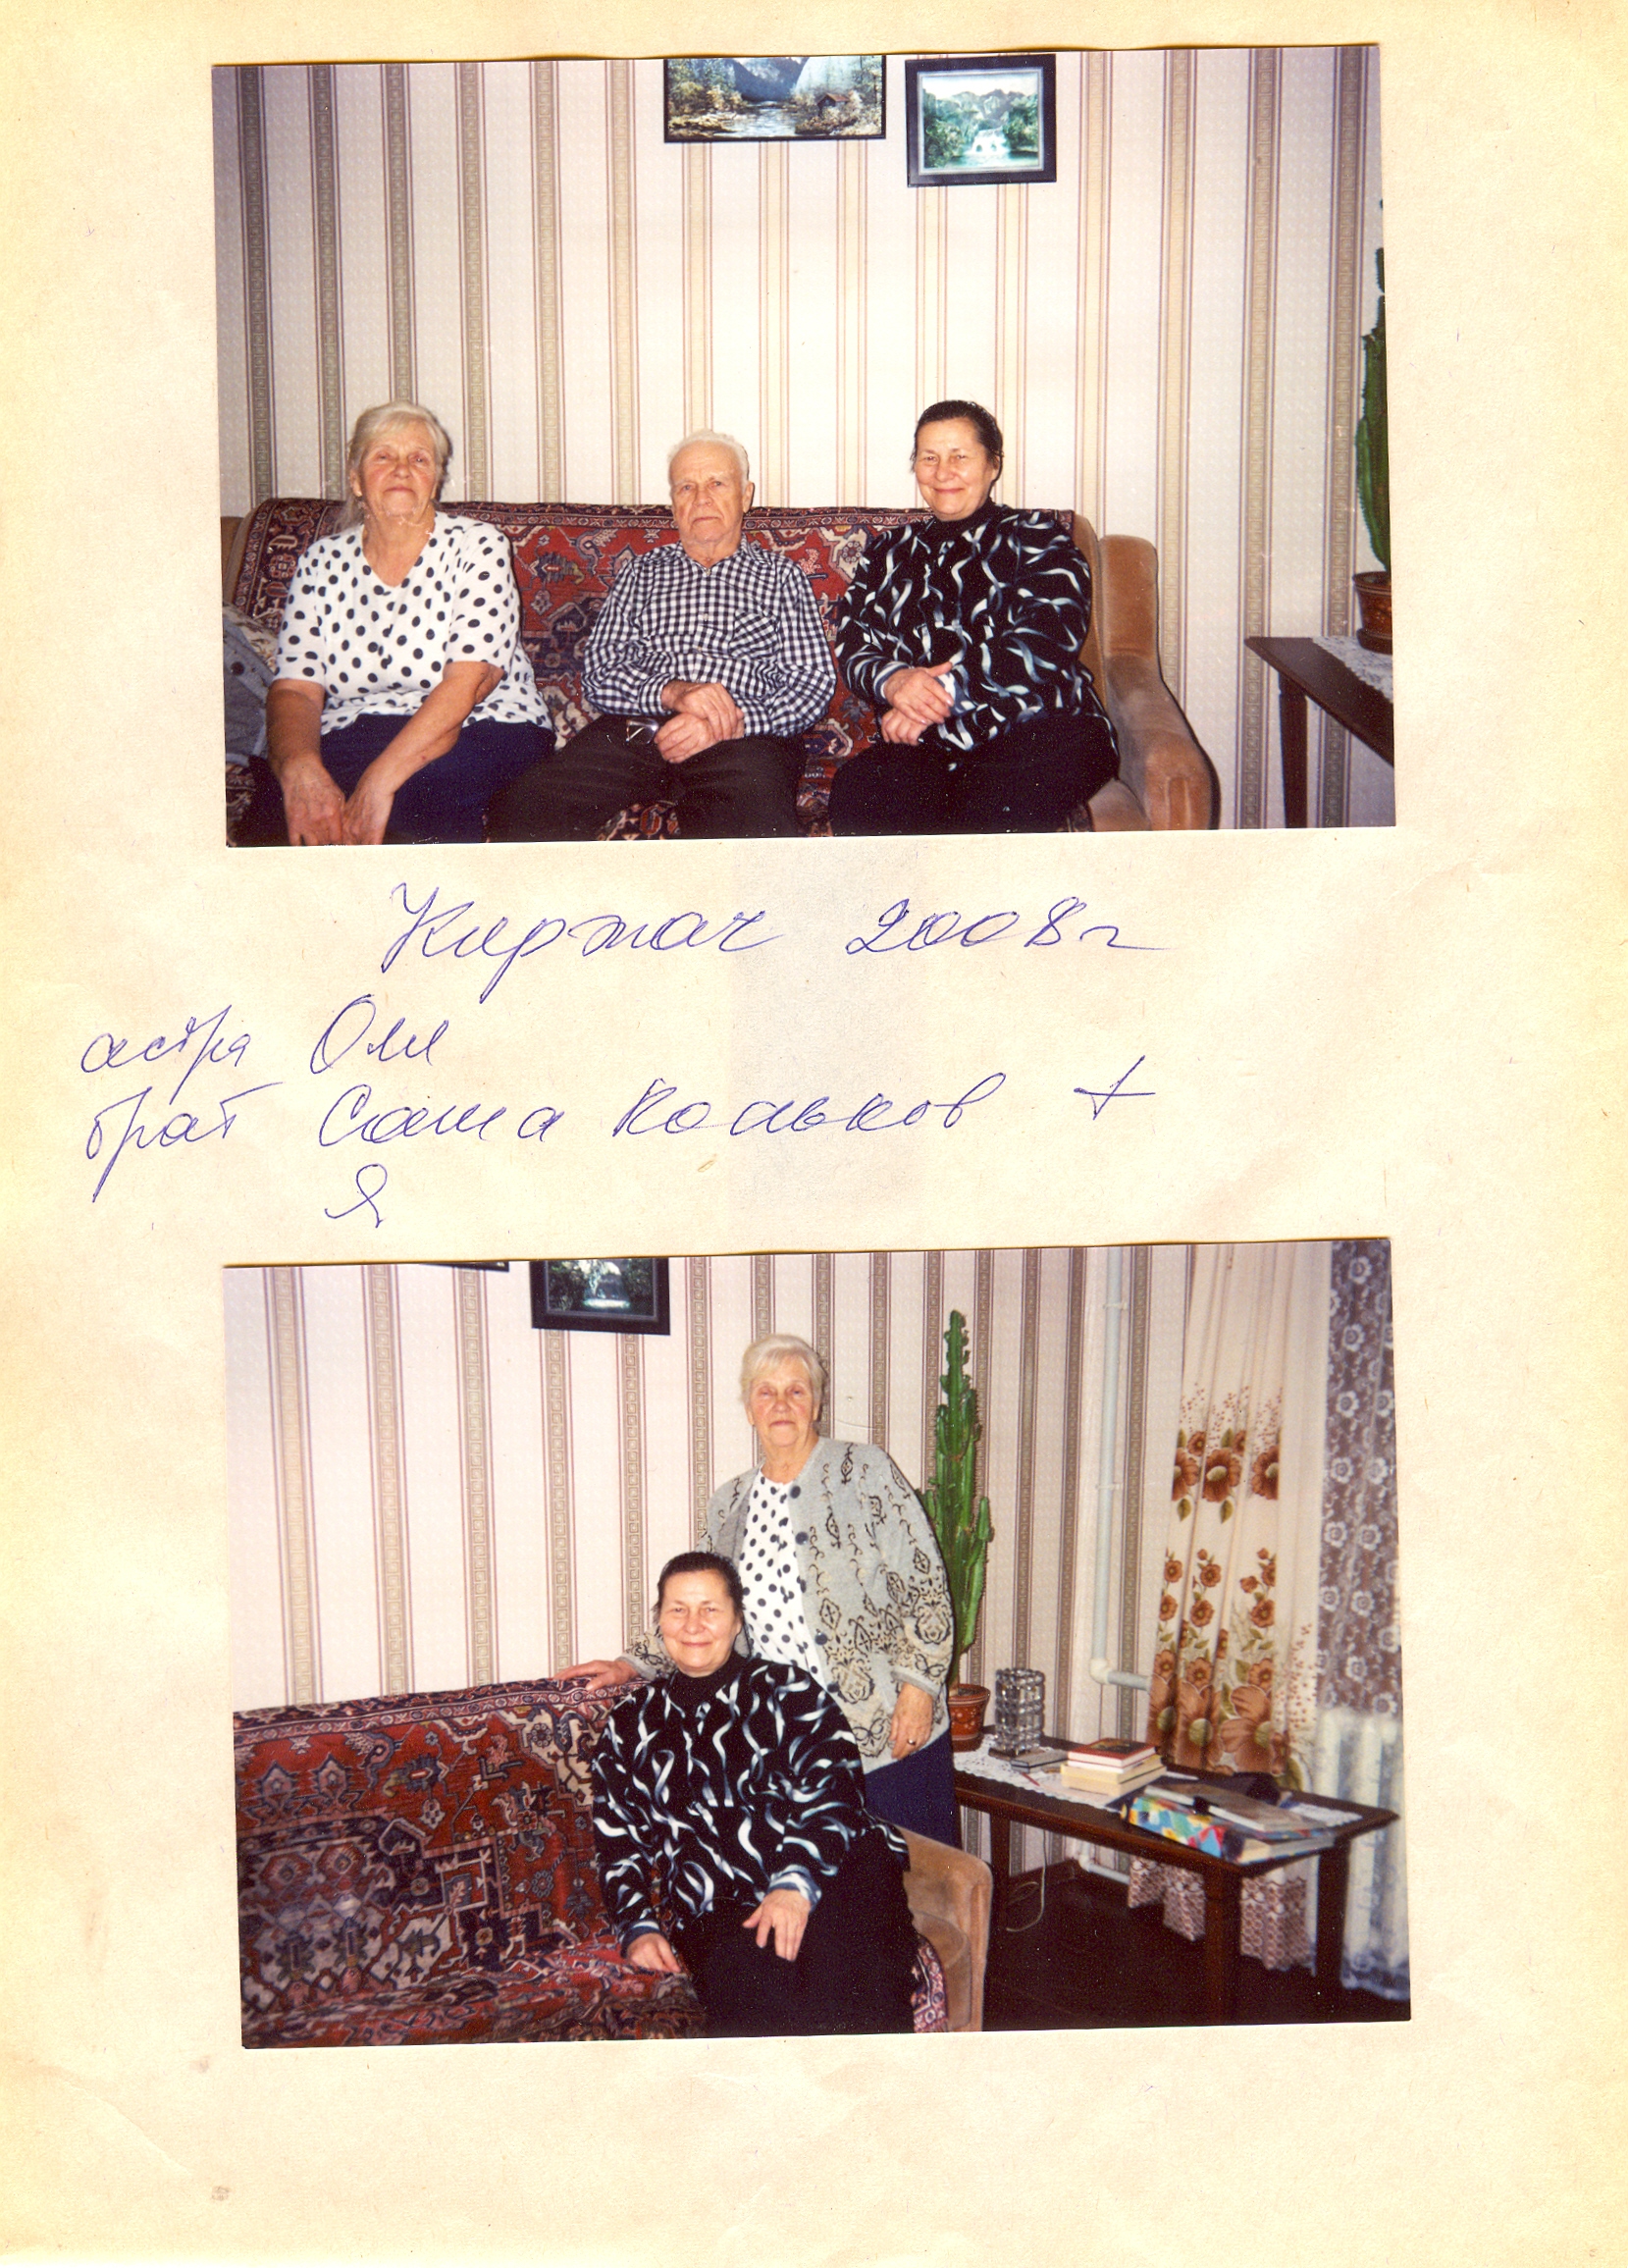 Киржач 2008 г
сестра Оля
брат Саша Кольков +
Я